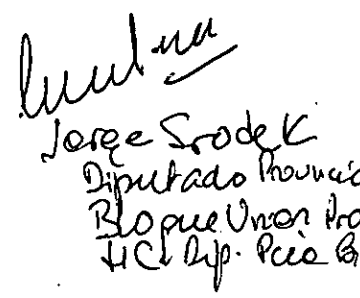 Jorge Srodek
Diputado Provincia
Bloque Union Pro
H.C. Dip. Pcia B